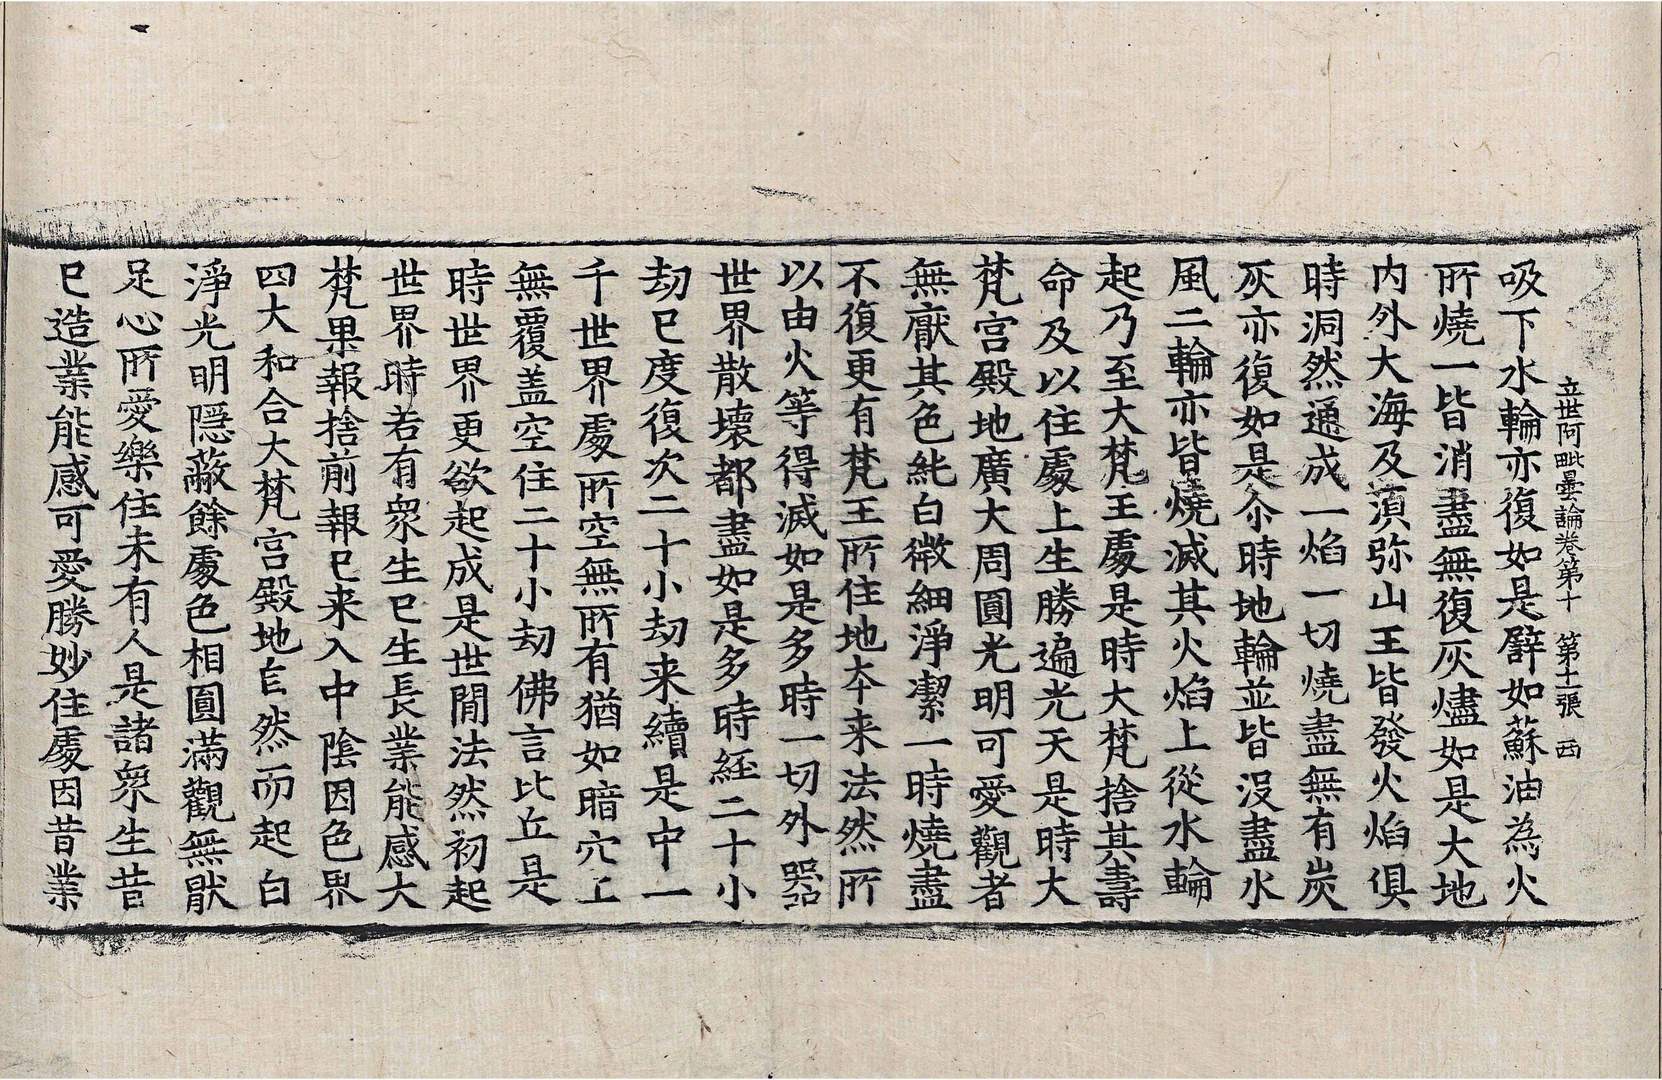 立世阿毗曇論卷第十　第十一張　西
吸下水輪亦復如是譬如蘇油為火
所燒一皆消盡無復灰燼如是大地
内外大海及湏弥山王皆發火焰俱
時洞然通成一焰一切燒盡無有炭
灰亦復如是尒時地輪並皆没盡水
風二輪亦皆燒滅其火焰上從水輪
起乃至大梵王處是時大梵王捨其壽
命及以住處上生勝遍光天是時大
梵宫殿地廣大周圓光明可愛觀者
無厭其色純白微細淨潔一時燒盡
不復更有梵王所住地夲来法然所
以由火等得滅如是多時一切外器
世界散壞都盡如是多時經二十小
劫已度復次二十小劫来續是中一
千世界處所空無所有猶如暗穴上
無覆盖空住二十小劫佛言比丘是
時世界更欲起成是世間法然初起
世界時若有衆生已生長業能感大
梵果報捨前報已来入中陰因色界
四大和合大梵宫殿地自然而起白
淨光明隱蔽餘處色相圓滿觀無猒
足心所愛樂住未有人是諸衆生昔
已造業能感可愛勝妙住處因昔業